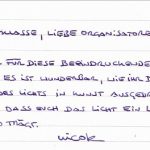 KLASSE, LIEBE ORGANISATORE
FÜR DIESE BEEINDRUCKENDE
ES IST WUNDERBAR, WIE IHR D
LICHTS IN KUNST AUSGEDR
DASS EUCH DAS LICHT EIN L
TRÄGT.